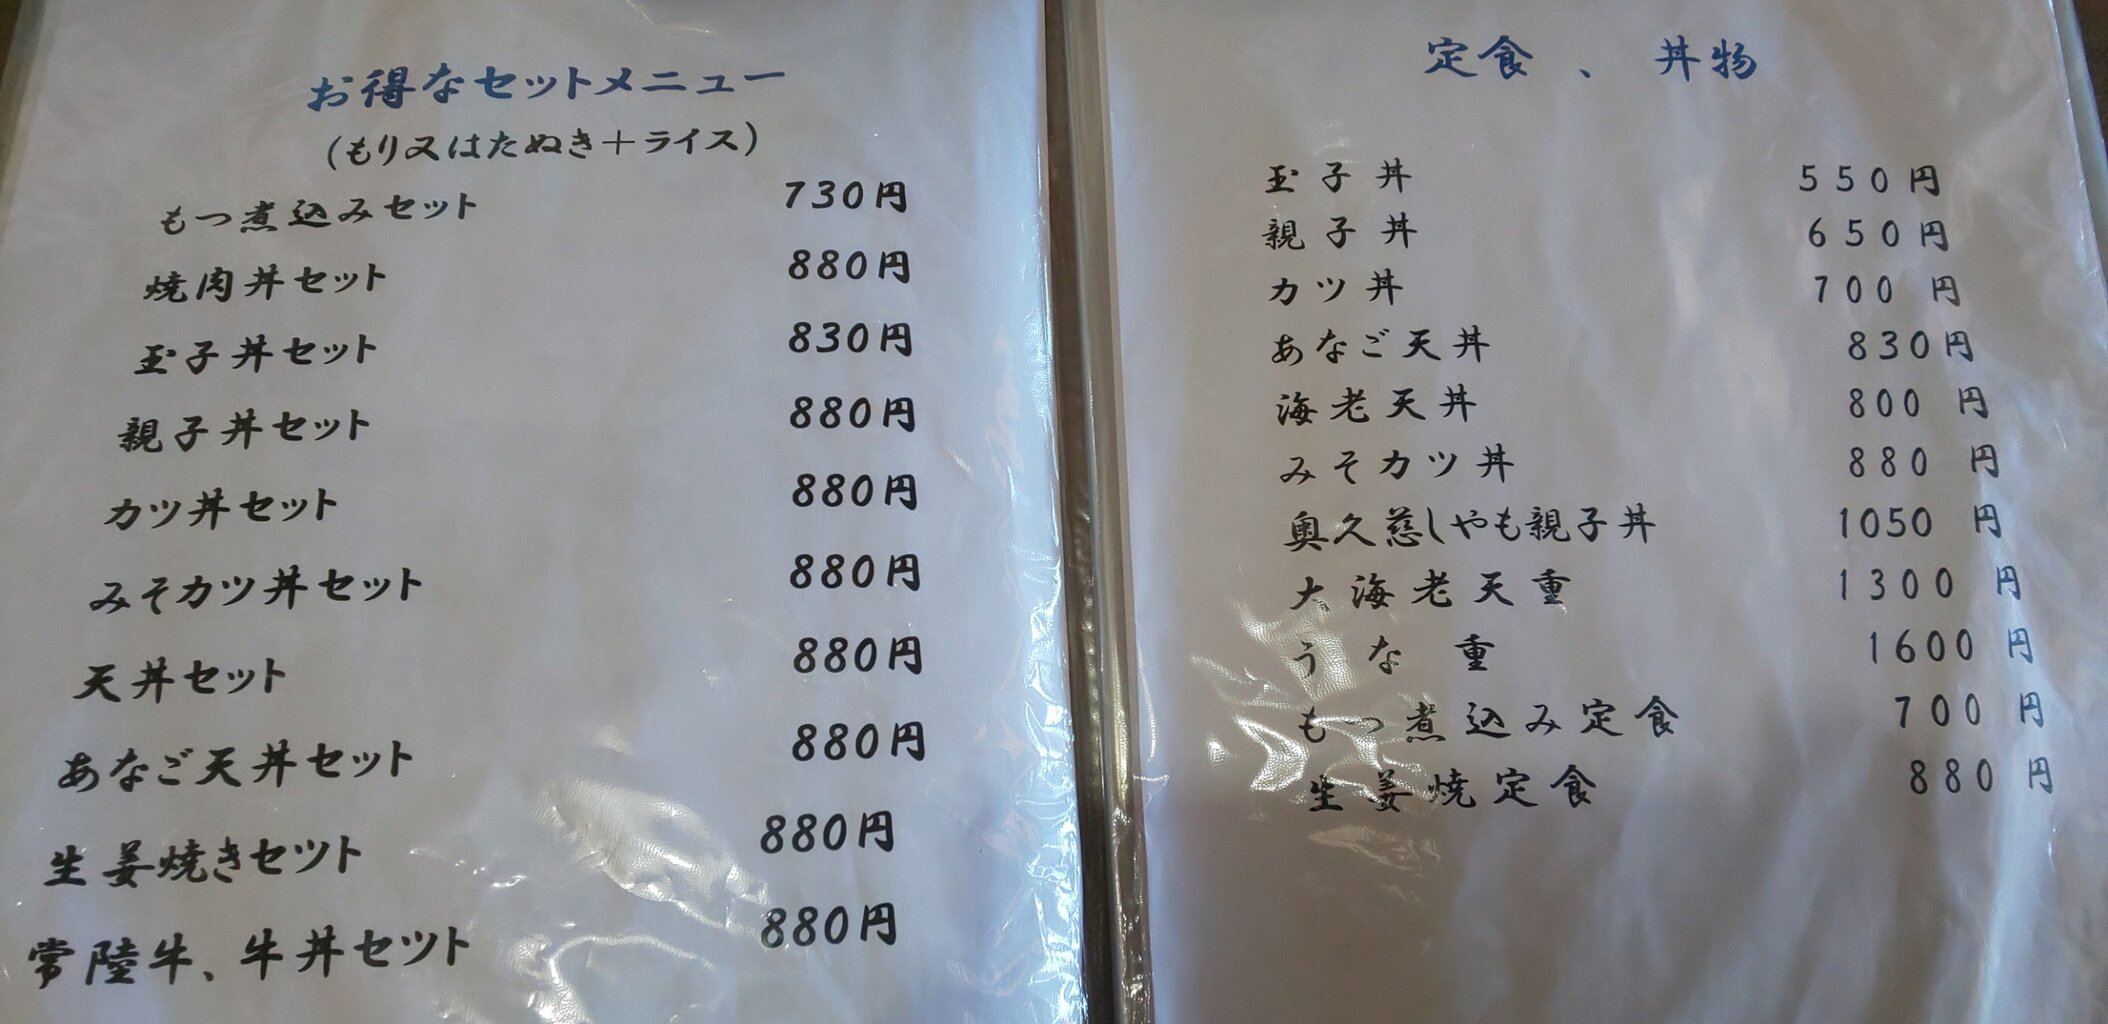 お得なセットメニュー
(もり又はたぬき＋ライス)
もつ煮込みセット 730円
焼肉丼セット 880円
玉子丼セット 830円
親子丼セット 880円
カツ丼セット 880円
みそカツ丼セット 880円
天丼セット 880円
あなご天丼セット 880円
生姜焼きセツト 880円
常陸牛、牛丼セツト 880円
定食 、 丼物
玉子丼 550円
親子丼 650円
カツ丼 700円
あなご天丼 830円
海老天丼 800円
みそカツ丼 880円
奥久慈しやも親子丼 1050円
大海老天重 1300円
うな重 1600円
もつ煮込み定食 700円
生姜焼定食 880円